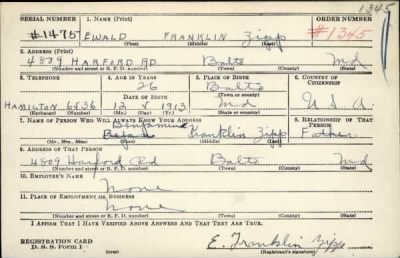 1345
SERIAL NUMBER 1. NAME (Print) ORDER NUMBER
#1475 EWALD FRANKLIN Zipp #1345
(First) (Middle) (Last)
2. ADDRESS (Print)
4809 HARFORD RD. Balto Md
(Number and street or R. F. D. number) (Town) (County) (State)
3. TELEPHONE 4. AGE IN YEARS 5. PLACE OF BIRTH 6. COUNTRY OF CITIZENSHIP
26 Balto
DATE OF BIRTH (Town or county)
HAMILTON 6836 12 1913 Md U. S. A.
(Exchange) (Number) (Mo.) (Day) (Yr.) (State or country)
7. NAME OF PERSON WHO WILL ALWAYS KNOW YOUR ADDRESS 8. RELATIONSHIP OF THAT PERSON
Benjamine
Franklin Zipp Father
(Mr., Mrs., Miss) (First) (Middle) (Last)
9. ADDRESS OF THAT PERSON
4809 Harford Rd Balto Md
(Number and street or R. F. D. number) (Town) (County) (State)
10. EMPLOYER'S NAME
None
11. PLACE OF EMPLOYMENT OR BUSINESS
None
(Number and street or R. F. D. number) (Town) (County) (State)
I AFFIRM THAT I HAVE VERIFIED ABOVE ANSWERS AND THAT THEY ARE TRUE.
REGISTRATION CARD
D. S. S. Form 1 (over) E. Franklin Zipp
(Registrant's signature)